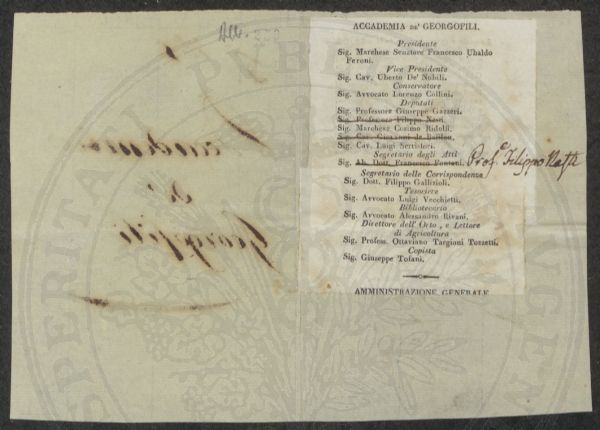 ACCADEMIA DE' GEORGOFILI.
Presidente
Sig. Marchese Senatore Francesco Ubaldo
Feroni.
Vice Presidente
Sig. Cav. Uberto De' Nobili.
Conservatore
Sig. Avvocato Lorenzo Collini.
Deputati
Sig. Professore Giuseppe Gazzeri.
Sig. Professore Filippo Nesti.
Sig. Marchese Cosimo Ridolfi.
Sig. Cav. Giovanni de
Sig. Cav. Luigi Serristori.
Segretario degli Atti
Sig. Ab. Dott. Francesco Fontani. Prof.e Filippo
Segretario delle Corrispondenze
Sig. Dott. Filippo Gallizioli.
Tesoriere
Sig. Avvocato Luigi Vecchietti.
Bibliotecario
Sig. Avvocato Alessandro Rivani.
Direttore dell' Orto, e Lettore
di Agricoltura
Sig. Profess. Ottaviano Targioni Tozzetti.
Copista
Sig. Giuseppe Tofani.
AMMINISTRAZIONE GENERALE
de'
Georgofili